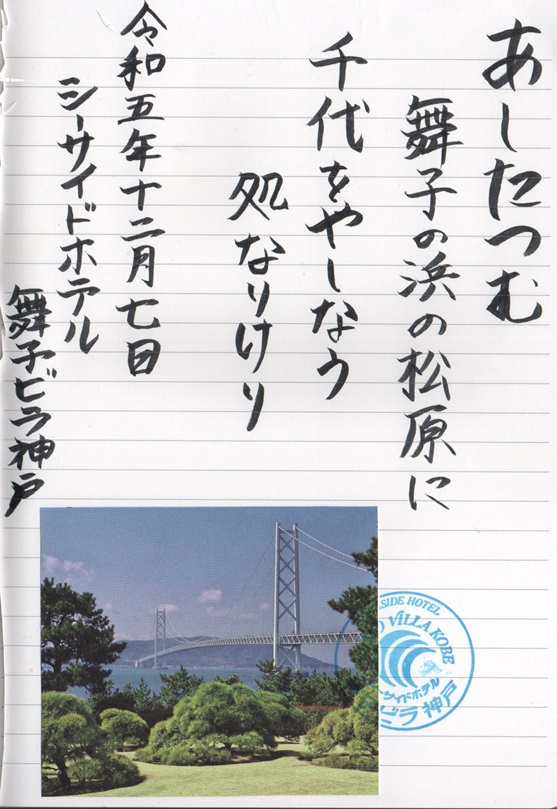 あしたつむ
舞子の浜の松原に
千代をやしなう
処なりけり
令和五年十二月七日
シーサイドホテル
舞子ビラ神戸
SIDE HOTEL
VILLA KOBE
ーサイドホテル
ビラ神戸